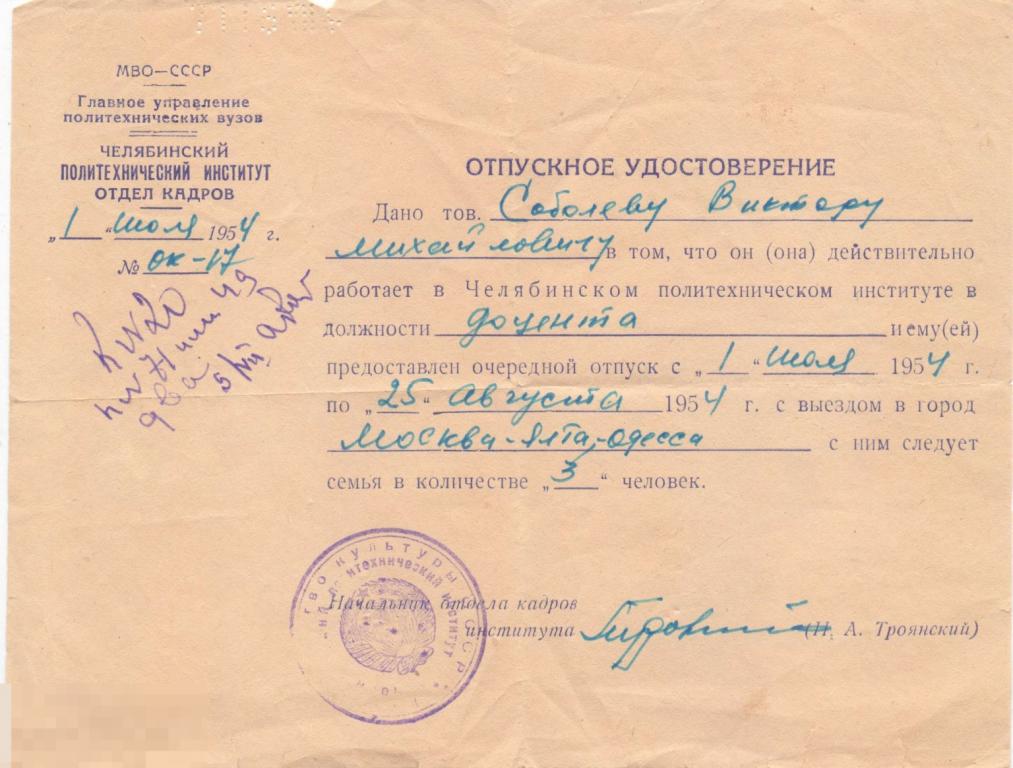 МВО—СССР
Главное управление
политехнических вузов
ЧЕЛЯБИНСКИЙ
ПОЛИТЕХНИЧЕСКИЙ ИНСТИТУТ
ОТДЕЛ КАДРОВ
„1" июля 1954 г.
№ ок-17
ОТПУСКНОЕ УДОСТОВЕРЕНИЕ
Дано тов. Соболеву Виктору
Михайловичу в том, что он (она) действительно
работает в Челябинском политехническом институте в
должности доцента и ему(ей)
предоставлен очередной отпуск с „1" июля 1954 г.
по „25" Августа 1954 г. с выездом в город
Москва-Ялта-Одесса с ним следует
семья в количестве „3" человек.
Начальник отдела кадров
института (Н. А. Троянский)
КУЛЬТУРЫ СССР
ИНСТИТУТ